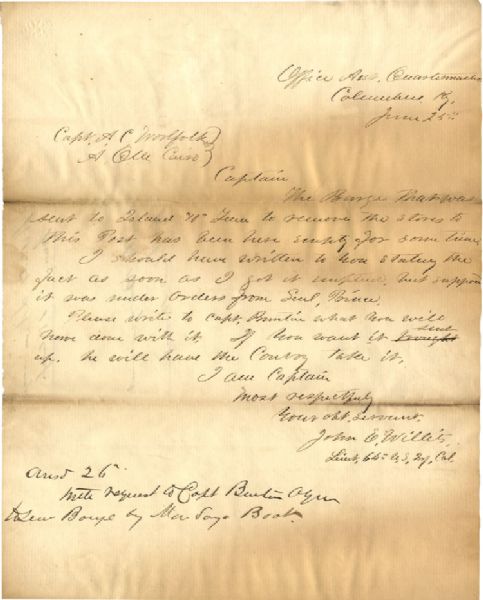 Office Asst. Quartermaster
Columbus Ky,
June 25th
Capt. A. C. Woolfolk
A. Q. M. Cairo
Captain
The Barge that was
sent to Island "10" Tenn to remove the stores to
this Post has been here empty for some time
I should have written to you stating the
fact as soon as I got it emptied, but supposed
it was under orders from Genl. Prince.
Please write to Capt. Buntin what you will
have done with it. If you want it brought sent
up, he will have the Convoy take it.
I am Captain
most respectfully
Your obt. servant,
John E. Willits,
Lieut. 64th U. S. Inf. Col.
Ansd 26th
with request to Capt Buntin AQM
to send Barge by Boat.